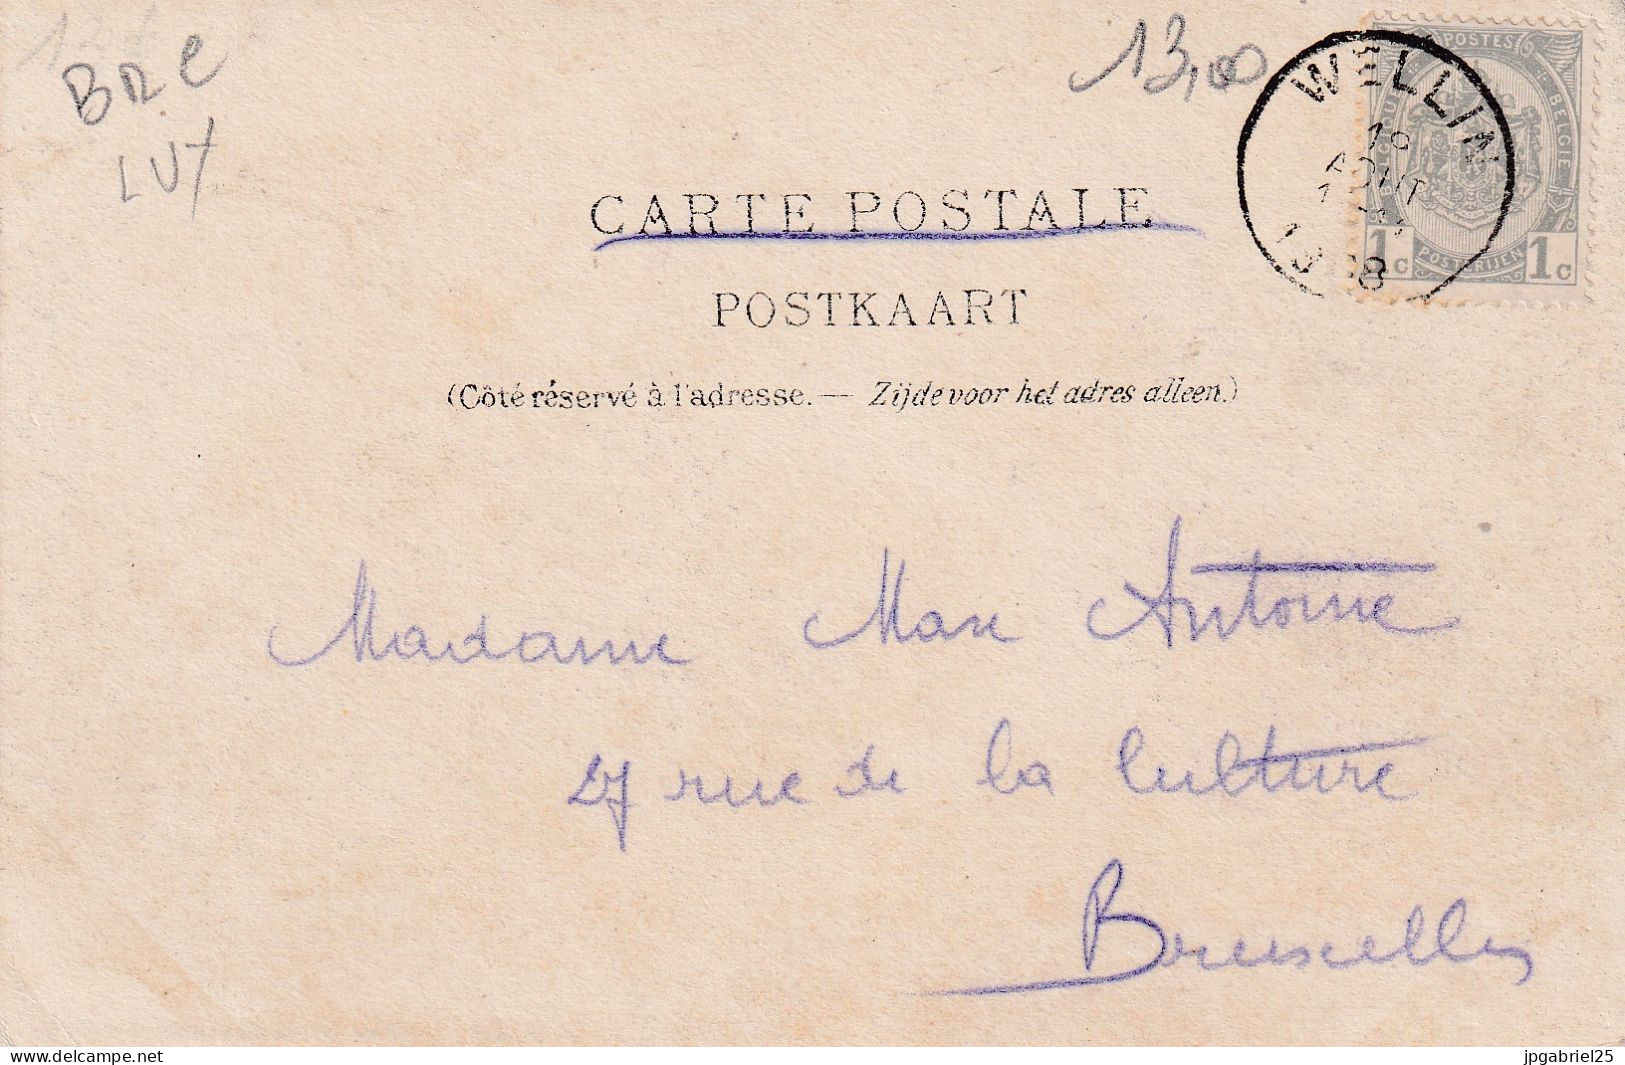 BRE
LUX
13,00
WELLIN
AOUT
POSTES
BELGIE
1c POSTERIJEN 1c
CARTE POSTALE
POSTKAART
(Côté réservé à l'adresse.— Zijde voor het adres alleen.)
Madame Max Antoine
27 rue de la Culture
Bruxelles
delcampe.net
jpgabriel25